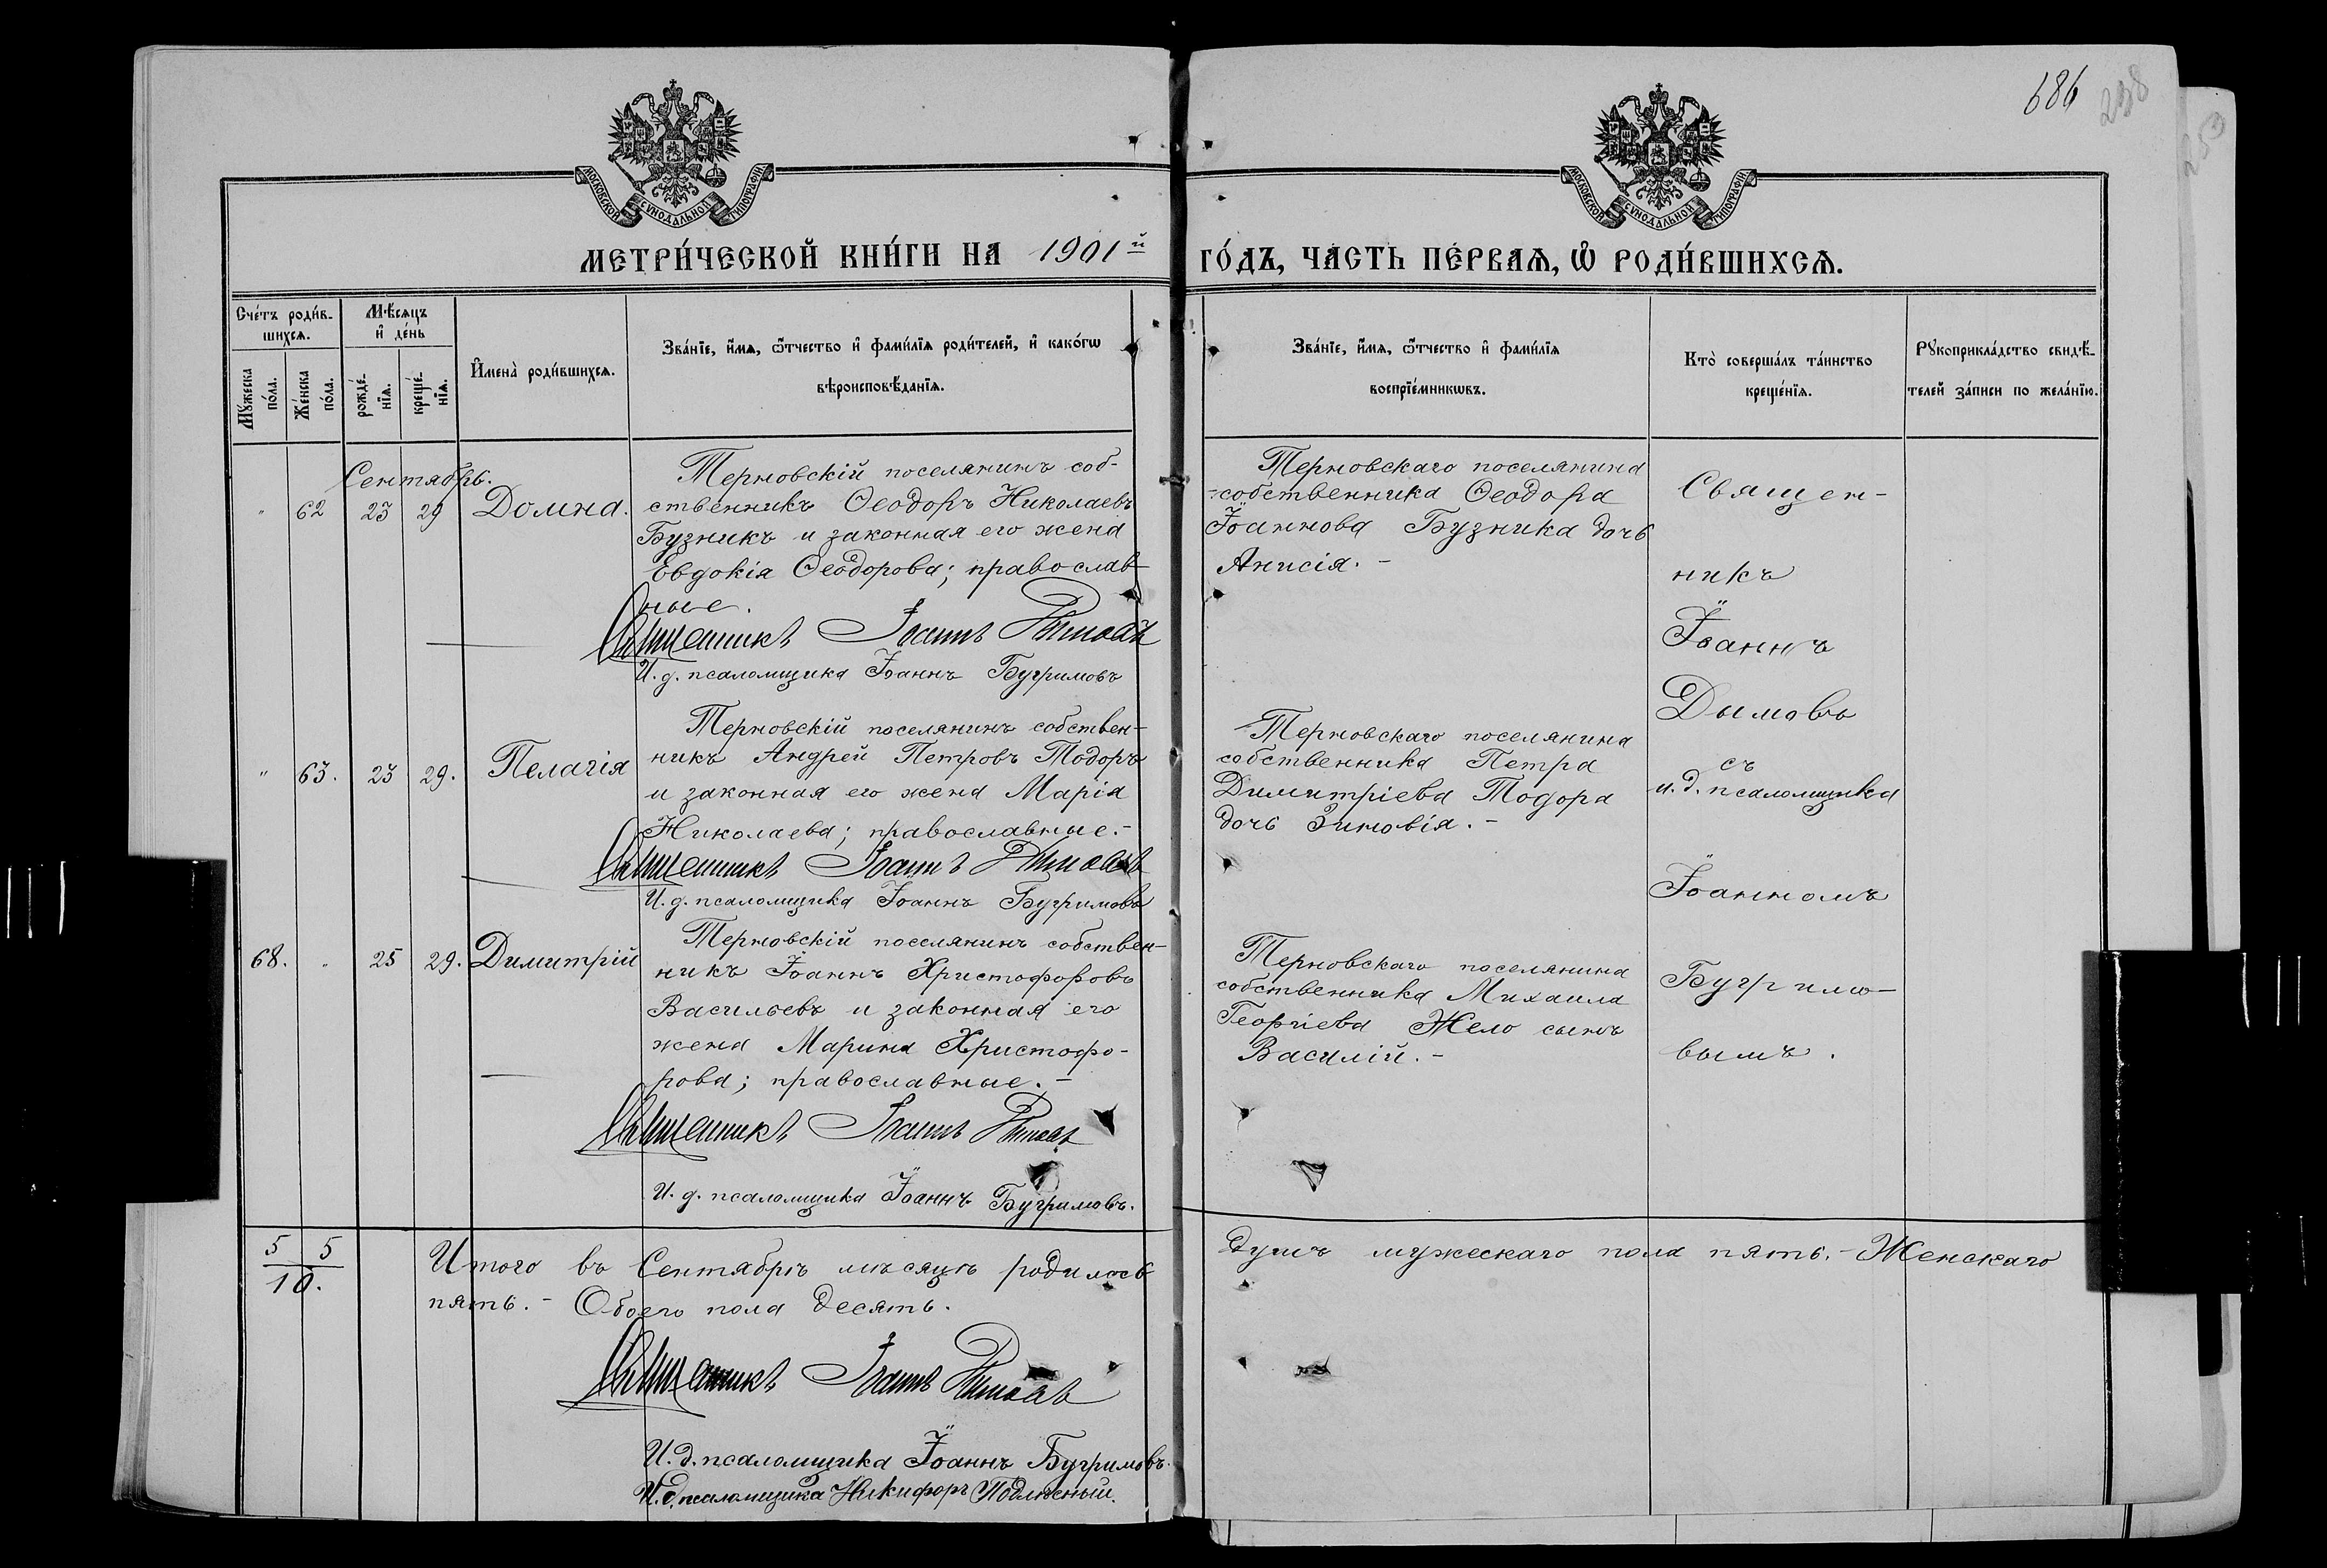 686
238
253
МОСКОВСКОЙ СѴНОДАЛЬНОЙ ТИПОГРАФІИ
МОСКОВСКОЙ СѴНОДАЛЬНОЙ ТИПОГРАФІИ
МЕТРИ́ЧЕСКОЙ КНИ́ГИ НА 1901й ГО́ДЪ, ЧА́СТЬ ПЕ́РВАѦ, Ѽ РОДИ́ВШИХСѦ.
Сче́тъ роди́в-
шихсѧ.
Мѣ́сѧцъ
и҆ де́нь
Мꙋ́жеска по́ла.
Же́нска по́ла.
рожде́-нїѧ.
креще́-нїѧ.
И҆мена̀ роди́вшихсѧ.
Зва́нїе, и҆́мѧ, ѻ҆́тчество и҆ фами́лїѧ роди́телей, и҆ како́гѡ
вѣроисповѣ́данїѧ.
Зва́нїе, и҆́мѧ, ѻ҆́тчество и҆ фами́лїѧ
воспрїе́мникѡвъ.
Кто̀ соверша́лъ та́инство
креще́нїѧ.
Рꙋкоприкла́дство свидѣ́-
телей за́писи по жела́нїю.
Сентябрь.
" 62 23 29 Домна.
Терновскій поселянинъ соб-
ственникъ Ѳеодоръ Николаевъ
Бузникъ и законная его жена
Евдокія Ѳеодорова; православ-
ные.
Священникъ Іоаннъ Дымовъ
И. д. псаломщика Іоаннъ Бугримовъ
Терновскаго поселянина
-собственника Ѳеодора
Іоаннова Бузника дочь
Анисія. -
" 63. 23 29. Пелагія
Терновскій поселянинъ собствен-
никъ Андрей Петровъ Тодоръ
и законная его жена Марія
Николаева; православные. -
Священникъ Іоаннъ Дымовъ
И. д. псаломщика Іоаннъ Бугримовъ
Терновскаго поселянина
собственника Петра
Димитріева Тодора
дочь Зиновія. -
68. " 25 29. Димитрій
Терновскій поселянинъ собствен-
никъ Іоаннъ Христофоровъ
Васильевъ и законная его
жена Марина Христофо-
рова; православные. -
Священникъ Іоаннъ Дымовъ
И. д. псаломщика Іоаннъ Бугримовъ.
Терновскаго поселянина
собственника Михаила
Георгіева Жело сынъ
Василій. -
Священ-
никъ
Іоаннъ
Дымовъ
съ
и. д. псаломщика
Іоанномъ
Бугримо-
вымъ.
5 5
10.
Итого въ Сентябрѣ мѣсяцѣ родилось душъ мужескаго пола пять. - Женскаго
пять. - Обоего пола десять.
Священникъ Іоаннъ Дымовъ
И. д. псаломщика Іоаннъ Бугримовъ.
И. д. псаломщика Никифоръ Подлѣсный.